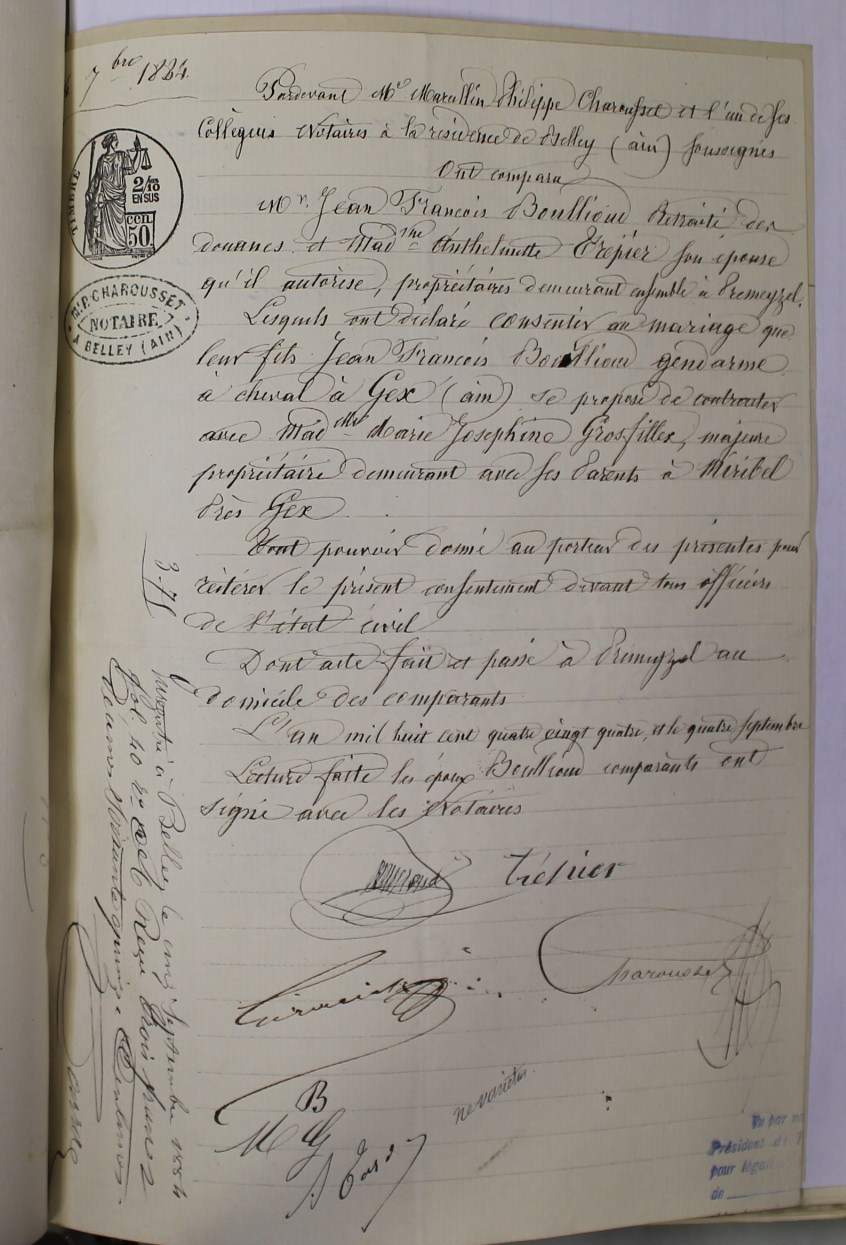 7bre 1884.
TIMBRE
2/10
EN SUS
50 CEN
Mn P. CHAROUSSET
NOTAIRE
A BELLEY (AIN)
Pardevant Me Marcellin Philippe Charousset et l'un de ses
Collègues Notaires à la résidence de Belley (ain) soussignés
Ont comparu
Mr. Jean François Boullioud Retraité des
douanes et Madme Anthelmette Trépier son épouse
qu'il autorise, propriétaires demeurant ensemble à Premeyzel.
Lesquels ont déclaré consentir au mariage que
leur fils Jean François Boullioud gendarme
à cheval à Gex (ain) se propose de contracter
avec Madelle Marie Josephine Grosfillex, majeure
propriétaire demeurant avec ses Parents à Miribel
Près Gex.
Tout pouvoir donné au porteur des présentes pour
réitérer le présent consentement devant tous officiers
de l'état civil
Dont acte fait et passé à Premeyzel au
domicile des comparants
L'an mil huit cent quatre vingt quatre, et le quatre septembre
Lecture faite les époux Boullioud comparants ont
signé avec les Notaires
Boullioud Trépier
Charousset
B
M G
ne varietur
3.75
Enregistré à Belley le cinq Septembre 1884
fol. 40 Vo Reçu trois francs
soixante quinze Centimes.
Vu par n
Président du T
pour légali
de